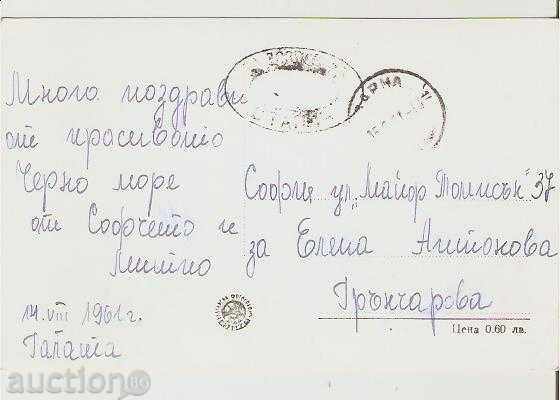 Много поздрави
от красивото
Черно море
от Софчето и
Милчо
14.VIII 1961 г.
Галата
София ул. „Майор Томпсън" 37
за Елена Антонова
Грънчарова
Цена 0.60 лв.
ВАРНА
auction